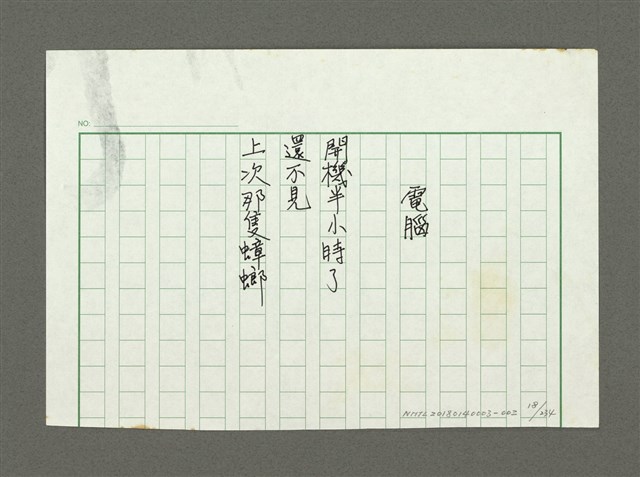 NO:
電腦
開機半小時了
還不見
上次那隻蟑螂
NMTL20180140003-002
18/234